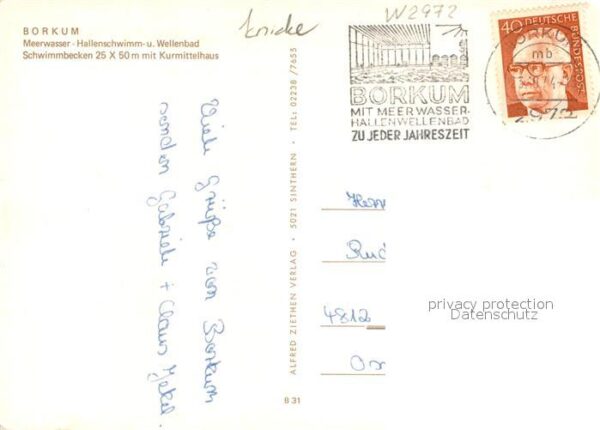 BORKUM
Meerwasser-Hallenschwimm- u. Wellenbad
Schwimmbecken 25 X 50 m mit Kurmittelhaus
knicke
W2972
BORKUM
MIT MEERWASSER-
HALLENWELLENBAD
ZU JEDER JAHRESZEIT
40 DEUTSCHE
BUNDESPOST
BORKUM
mb
2972
Viele Grüße von Borkum
senden Gabriele + Claus
ALFRED ZIETHEN VERLAG · 5021 SINTHERN · TEL: 02238 / 7655
Herr
Rud
4812
privacy protection
Datenschutz
B 31